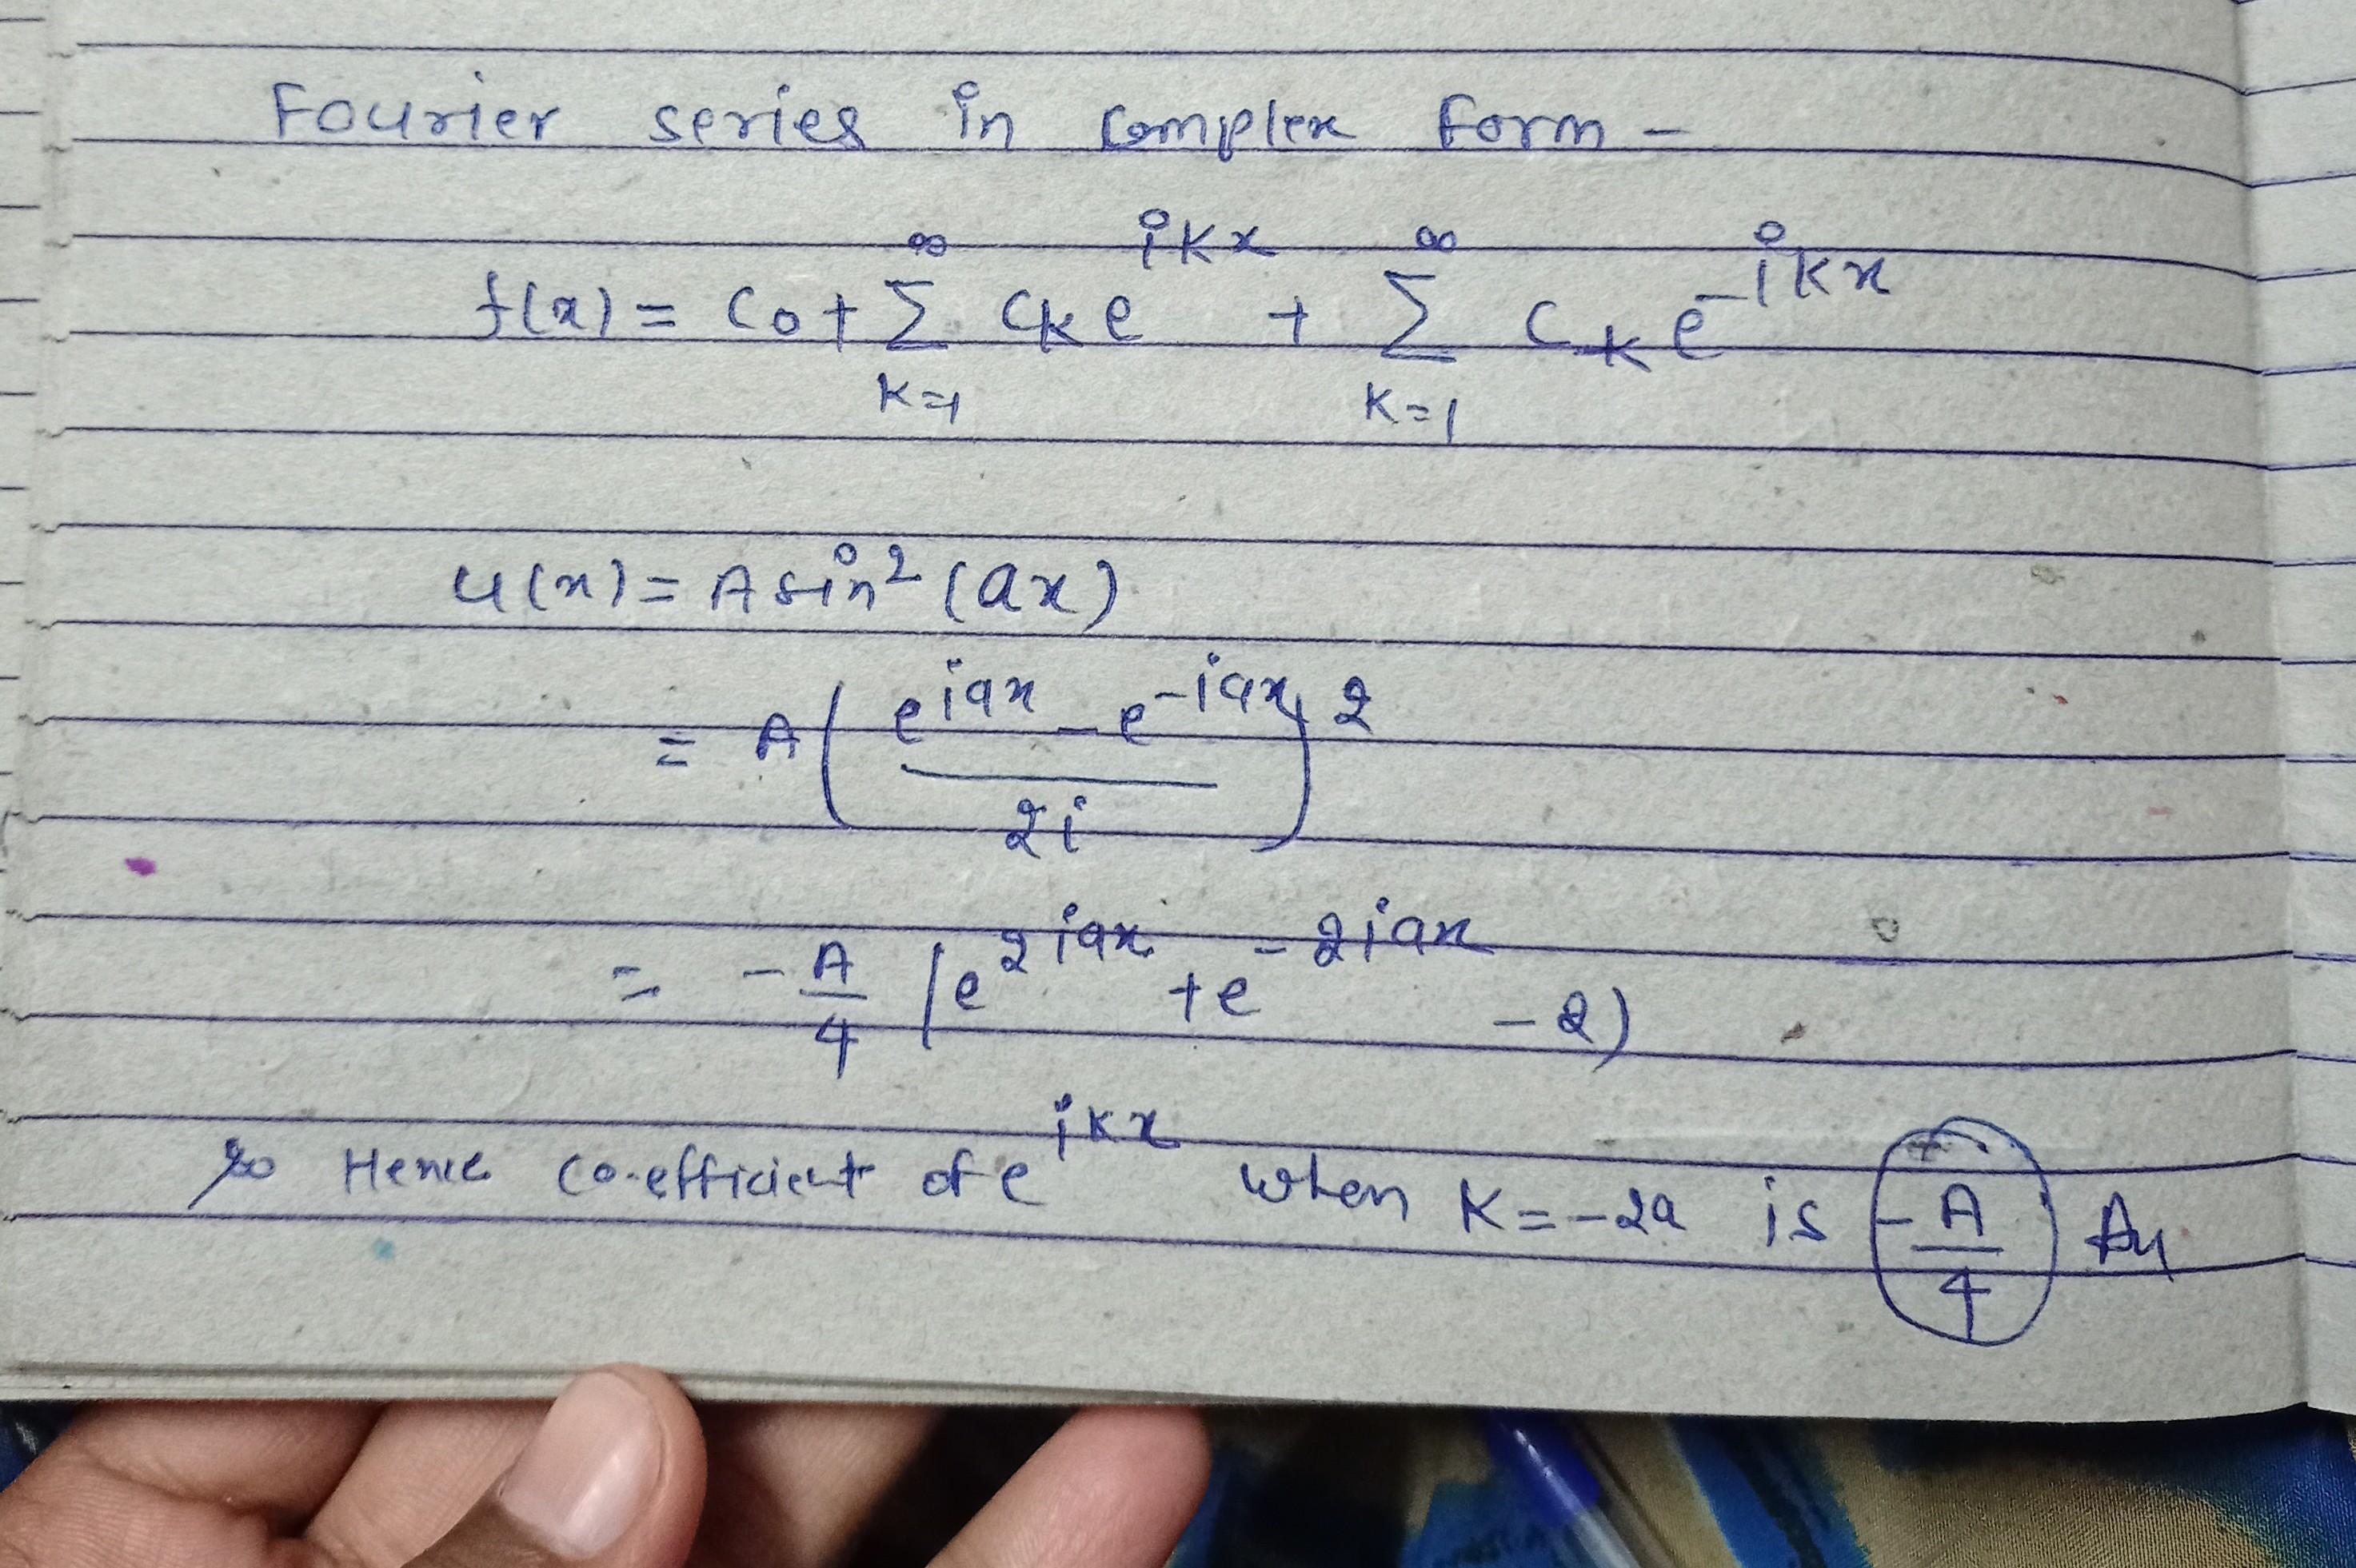 Fourier series in complex form -
f(x) = C₀ + ∞ Σ K=1 Cₖ e^{ikx} + ∞ Σ K=1 C₋ₖ e^{-ikx}
u(x) = A sin² (ax)
= A ( (e^{iax} - e^{-iax}) / 2i )²
= -A/4 (e^{2iax} + e^{-2iax} - 2)
so Hence co-efficient of e^{ikx} when K = -2a is -A/4